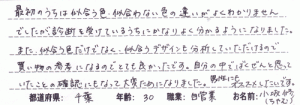 最初のうちは似合う色、似合わない色の違いがよくわかりません
でしたが診断を受けているうちにかなりよく分かるようになりました。
また、似合う色だけでなく、似合うデザインも分析していただけるので
買い物の参考になるのでとても良かったです。自分の中でぼくぜんと思って
いたことの確認にもなって大変ためになりました。男性にも
オススメしたいです。
都道府県: 千葉 年齢: 30 職業: 自営業 お名前: